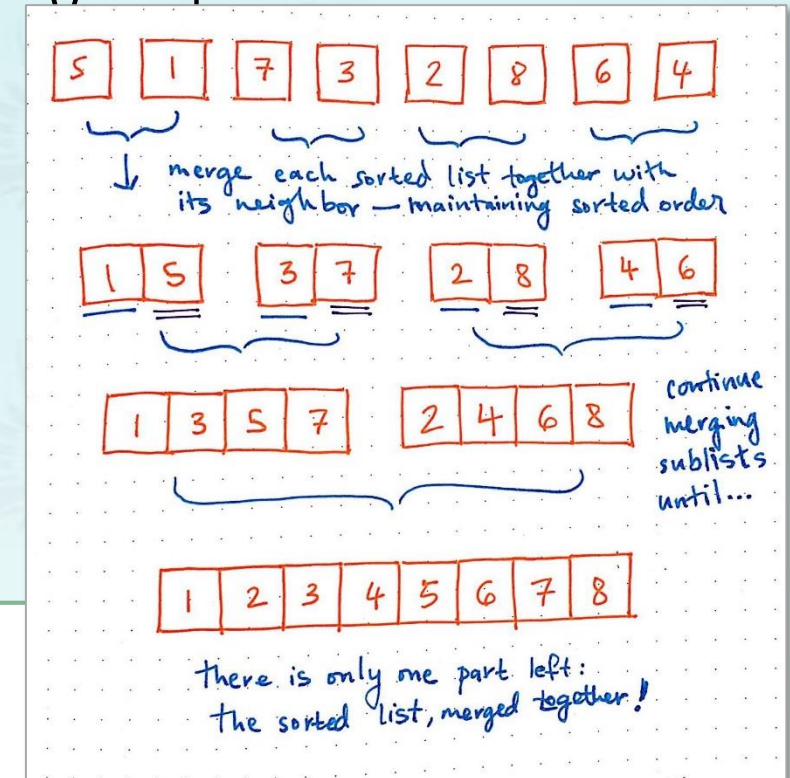 5 1 7 3 2 8 6 4
↓ merge each sorted list together with
its neighbor — maintaining sorted order
1 5 3 7 2 8 4 6
continue
1 3 5 7 2 4 6 8 merging
sublists
until...
1 2 3 4 5 6 7 8
there is only one part left:
the sorted list, merged together!